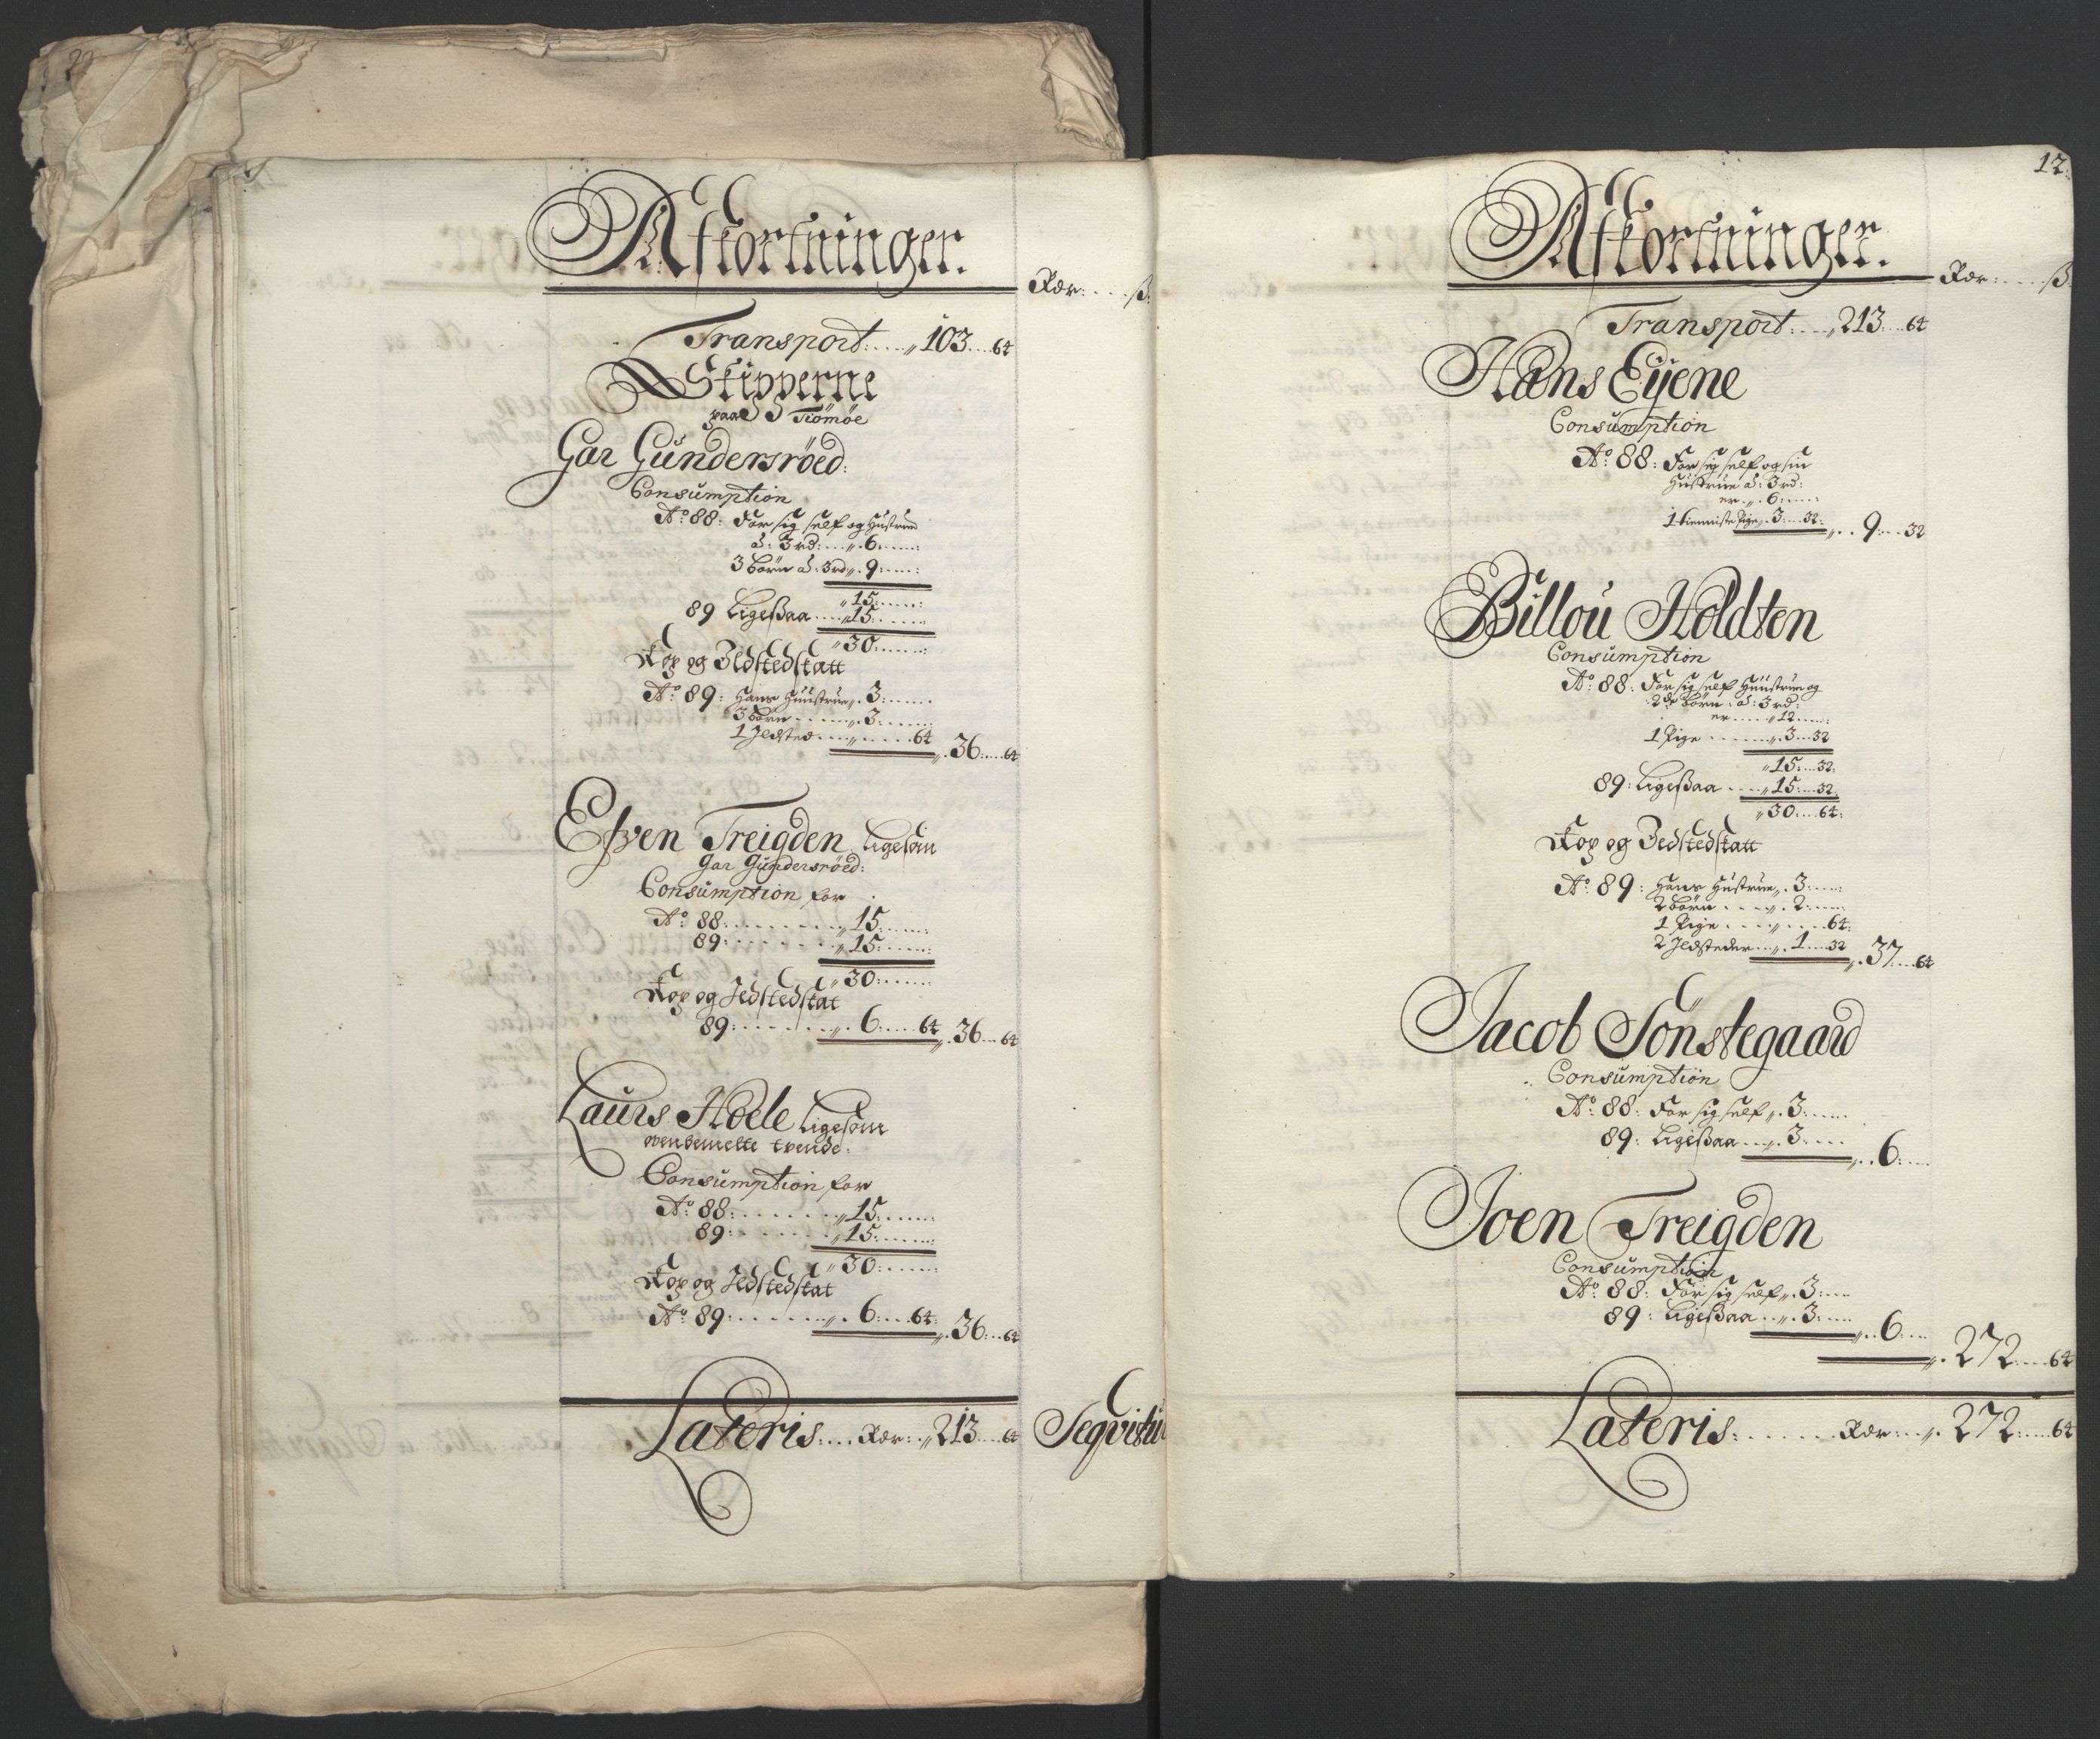 Afkortninger.
Rdr: ß:
Transport: 103 64
Skipperne
paa Tiömöe
Gar Gündersröed:
Consümption
Ao: 88: For sig self og Hustrue
à: 3 rd: 6:
3 börn à: 3rd 9:
15:
89 Ligesaa 15:
30:
Kop og Ildstedskatt
Ao: 89: Hans Huustrue 3:
3 börn 3:
1 Ildsted 64 36: 64
Esven Treigden Ligesom
Gar Gündersröed:
Consümption for
Ao: 88: 15:
89: 15:
30:
Kop og Ildstedskat
89: 6: 64 36: 64
Laurs Hoele Ligesom
ovenbemelte tvende:
Consümption for
Ao: 88: 15:
89: 15:
30:
Kop og Ildstedskat
Ao: 89: 6: 64: 36: 64
Lateris: Rdr: 213 64
Seqvistü
12:
Afkortninger.
Rdr: ß:
Transport: 213: 64
Hans Eÿene
Consümption
Ao: 88: For sig self og sin
Hustrue à: 3 rd:
er 6:
1 tienniste Pige 3: 32: 9: 32
Billoü Holdten
Consümption
Ao: 88: For sig self Huüstrue og
2de börn à: 3 rd:
er 12:
1 Pige 3: 32
15: 32:
89: Ligesaa 15: 32:
30: 64:
Kop og Ildstedskatt
Ao: 89: Hans Hustrue 3:
2 börn 2:
1 Pige 64:
2 Ildsteder 1 32 37: 64
Jacob Sönstegaard
Consümption
Ao: 88: For sig self 3:
89: Ligesaa 3: 6:
Joen Treigden
Consümption
Ao: 88: For sig self 3:
89: Ligesaa 3: 6:
272: 64
Lateris: Rdr: 272: 64